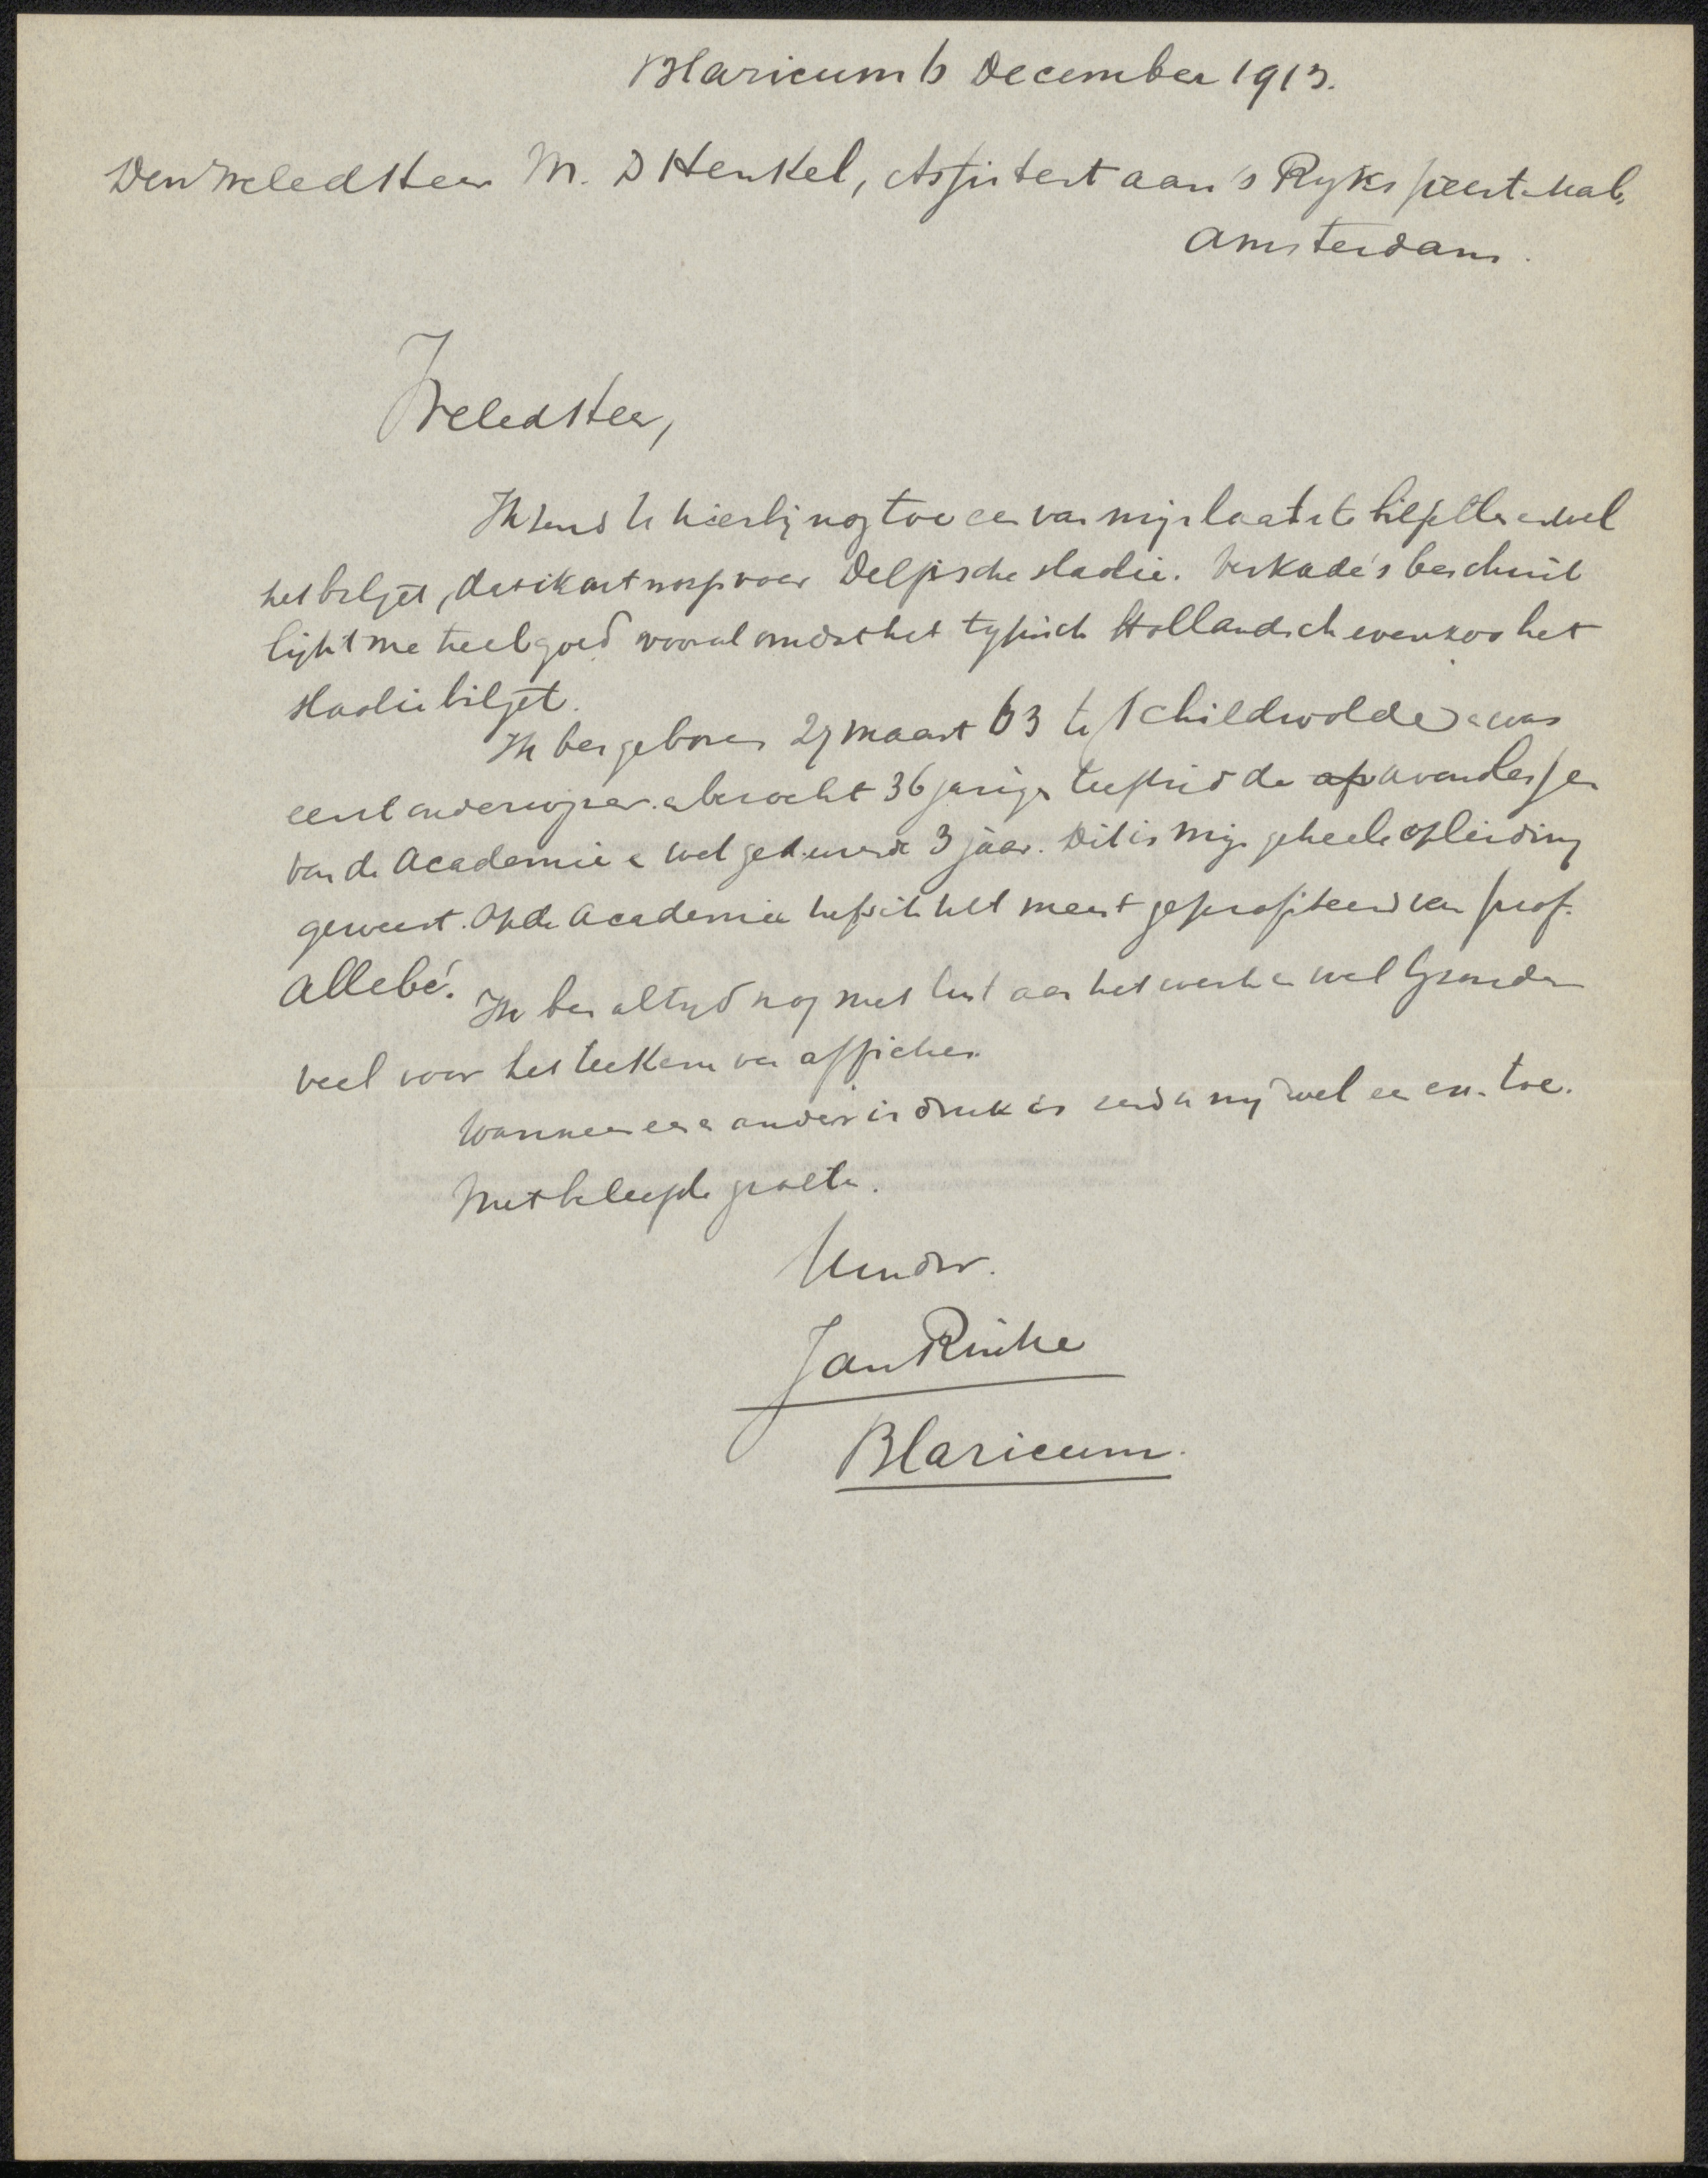 Blaricum 6 December 1913.
Den WeledHeer M. D Henkel, Assistent aan 's Ryks prent-kab,
Amsterdam.
WeledHeer,
Ik zend U hierbij nog toe een van mijn laatste biljetten en wel
het biljet, dat ik ontwierp voor Delfsche slaolie. Verkade's beschuit
lijkt me heel goed vooral omdat het typisch Hollandsch evenzoo het
slaolie biljet.
Ik ben geboren 27 maart 63 te Schildwolde en was
eerst onderwijzer en bezocht 36 jarige leeftijd de avondlessen
van de Academie en wel gedurende 3 jaar. Dit is mijn geheele opleiding
geweest. Op de Academie heb ik het meest geprofiteerd van prof.
Allebé.
Ik ben altijd nog met lust aan het werk en voel bizonder
veel voor het teekenen van affiches.
Wanneer een en ander in druk is zend u mij wel een ex. toe.
Met beleefde groeten.
Uw dw.
Jan Rinke
Blaricum.